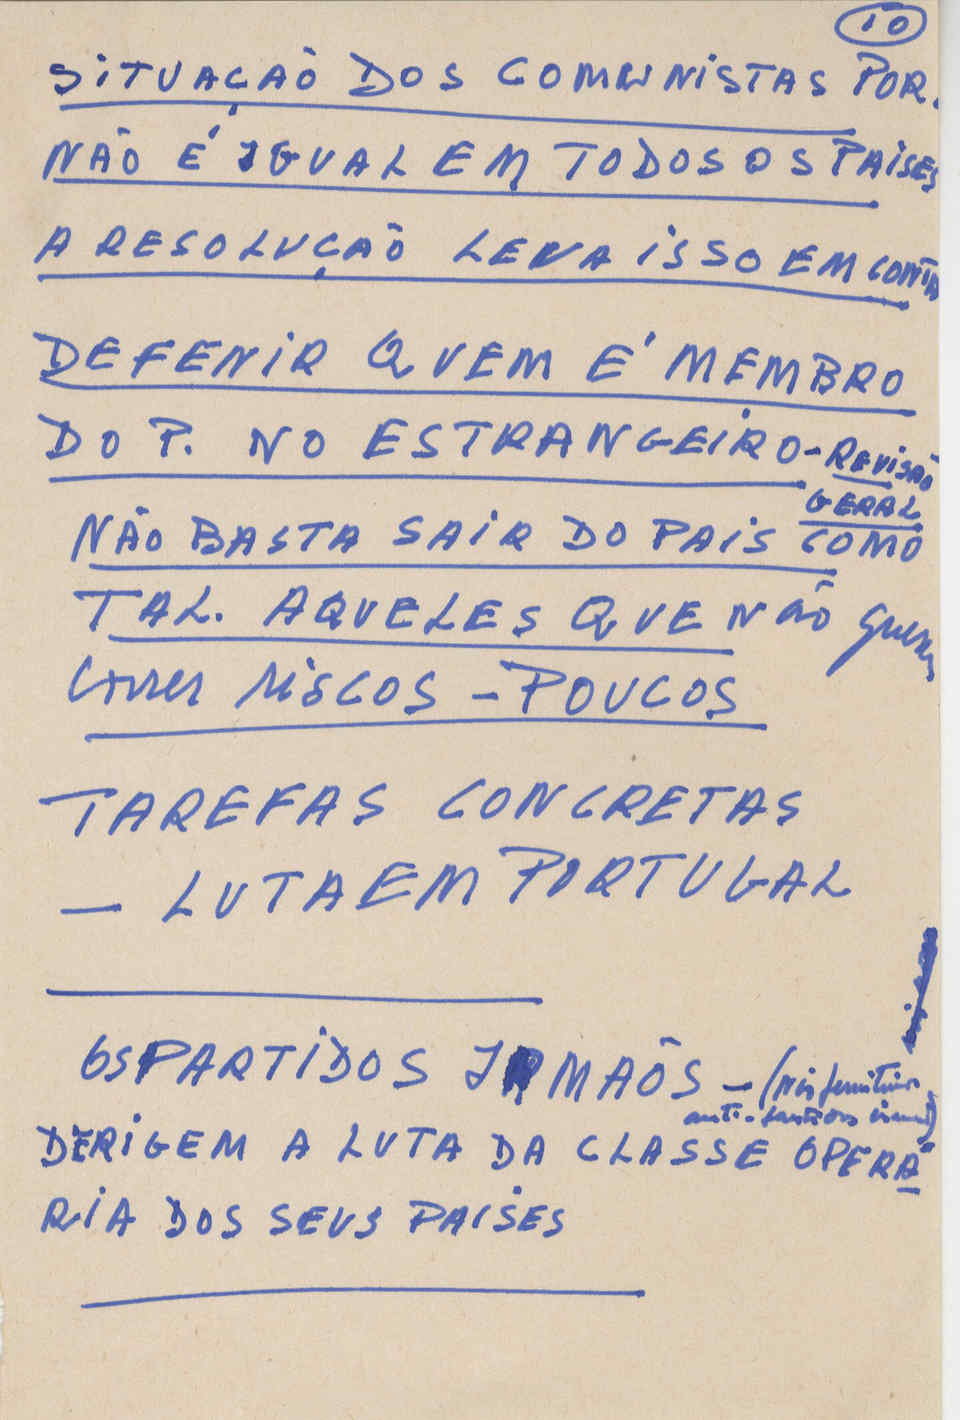 10
SITUAÇÃO DOS COMUNISTAS POR.
NÃO É IGUAL EM TODOS OS PAISES
A RESOLUÇÃO LEVA ISSO EM CONTA
DEFENIR QUEM É MEMBRO
DO P. NO ESTRANGEIRO - REVISÃO
GERAL
NÃO BASTA SAIR DO PAIS COMO
TAL. AQUELES QUE NÃO querem
correr RISCOS - POUCOS
TAREFAS CONCRETAS
— LUTA EM PORTUGAL
OS PARTIDOS IRMÃOS - (não
anti-
DIRIGEM A LUTA DA CLASSE OPERA
RIA DOS SEUS PAISES